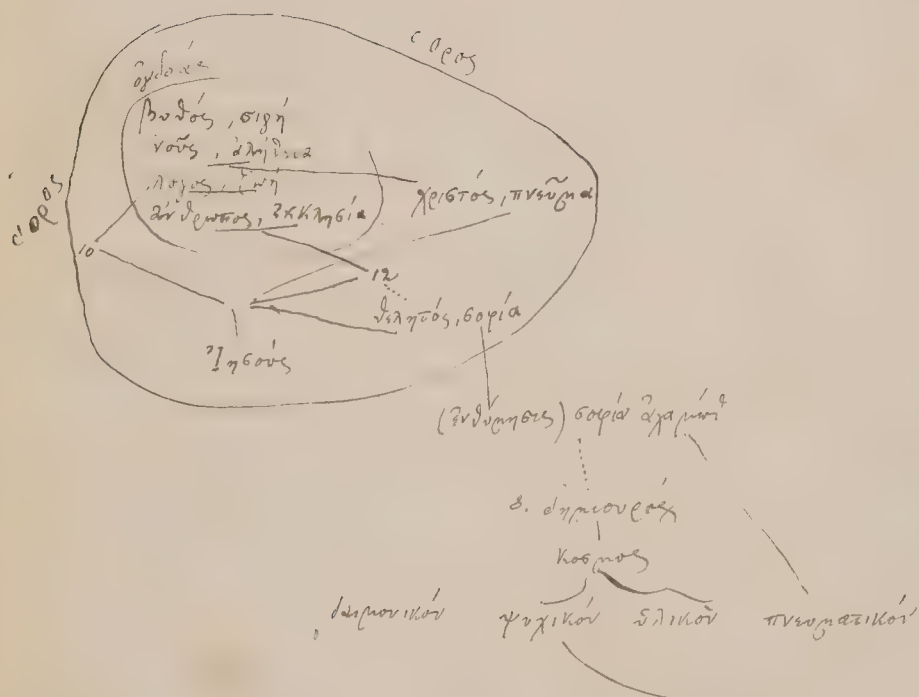 ὅρος
ὀγδοάς
βυθός, σιγή
νοῦς, ἀλήθεια
λόγος, ζωή
χριστός, πνεῦμα
ἄνθρωπος, ἐκκλησία
ὅρος
10
12
θελητός, σοφία
Ἰησοῦς
(ἐνθύμησις) σοφία ἀχαμώθ
8. δημιουργός
κοσμος
δαιμονικόν ψυχικόν ὑλικόν πνευματικόν